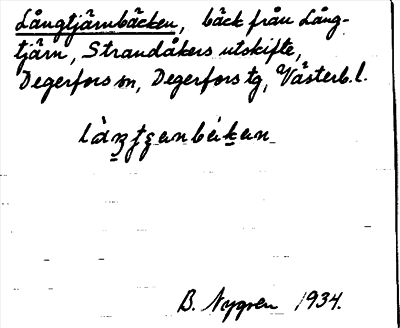 Långtjärnbäcken, bäck från Lång-
tjärn, Strandåkers utskifte,
Degerfors sn, Degerfors tg, Västerb. l.
B. Nygren 1934.